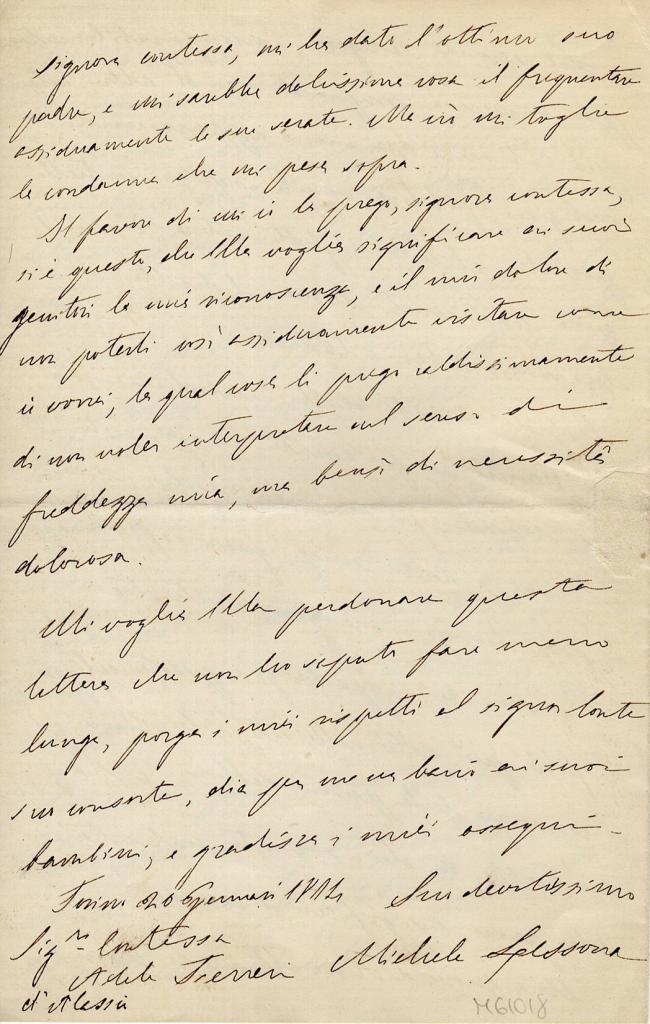 signora contessa, mi ha dato l'ottimo suo
padre, e mi sarebbe dolcissima cosa il frequentare
assiduamente le sue serate. Ma ciò mi toglie
la condanna che mi pesa sopra.
Il favore di cui io la prego, signora contessa,
si è questo, che Ella voglia significare ai suoi
genitori la mia riconoscenza, e il mio dolore di
non poterli così assiduamente visitare come
io vorrei, la qual cosa li prego caldissimamente
di non voler interpretare nel senso di
freddezza mia, ma bensì di necessità
dolorosa.
Mi voglia Ella perdonare questa
lettera che non ho saputo fare meno
lunga, porga i miei rispetti al signor Conte
suo consorte, dia per me un bacio ai suoi
bambini, e gradisca i miei ossequi.
Torino 26 Gennaio Suo devotissimo
Sig.ra Contessa
Adele Michele Lessona
d'Alassio
M61018